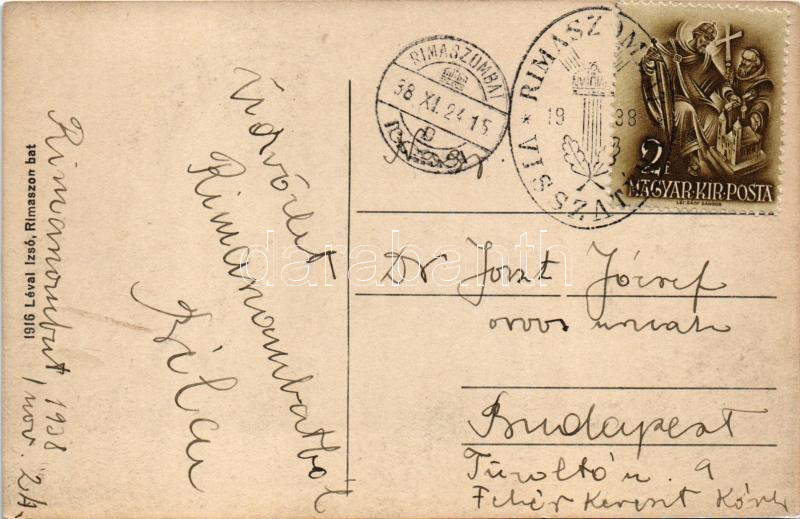 1916 Lévai Izsó, Rimaszombat
Rimaszombat, 1938
nov. 24.
Üdvözlet
Rimaszombatból
RIMASZOMBAT
38 XI. 24 15
VISSZATÉRT
RIMASZOMBAT
1938
2f
MAGYAR·KIR·POSTA
darabanth
Dr József
orvos urnak
Budapest
Tűzoltó u. 9
Fehér Kereszt Kórh